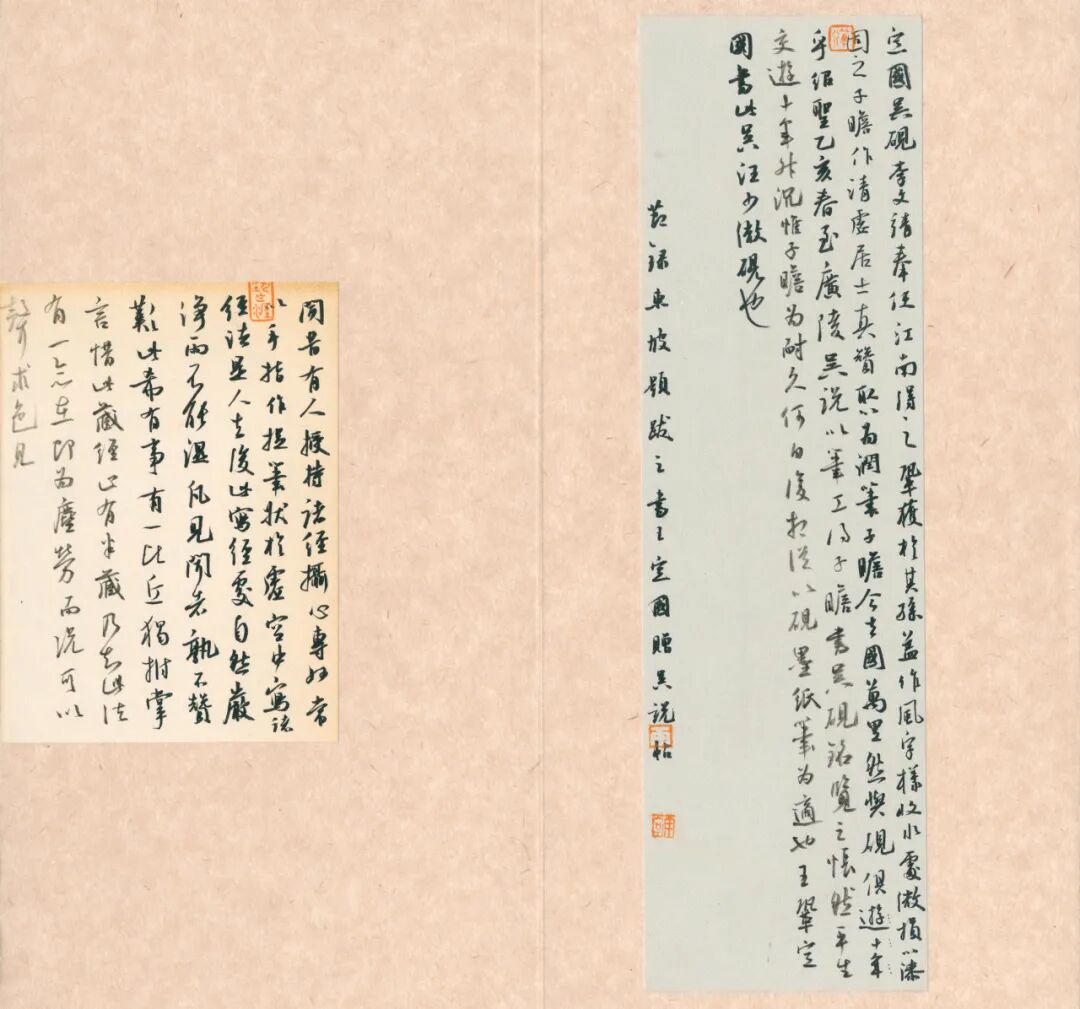 定國吳硯李文靖奉使江南得之鞏獲於其孫益作風字樣收水處微損以漆
固之子瞻作清虛居士真贊取為潤筆子瞻今去國萬里然與硯俱遊十年
乎紹聖乙亥春至廣陵吳說以筆工得子瞻書吳硯銘覽之悵然平生
交遊十年升沉惟子瞻為耐久何日復相從以硯墨紙筆為適也王鞏定
國書此吳汪少微硯也
節錄東坡題跋之書王定國贈吳說帖
聞昔有人授持諸經攝心專妙常
以手指作捉筆狀於虛空中寫諸
經法是人去後此寫經處自然嚴
淨雨不能濕凡見聞者孰不贊
歎此希有事有一比丘獨拊掌
言惜此藏經止有半藏乃知此法
有一念在即為塵勞而況可以
聲求色見